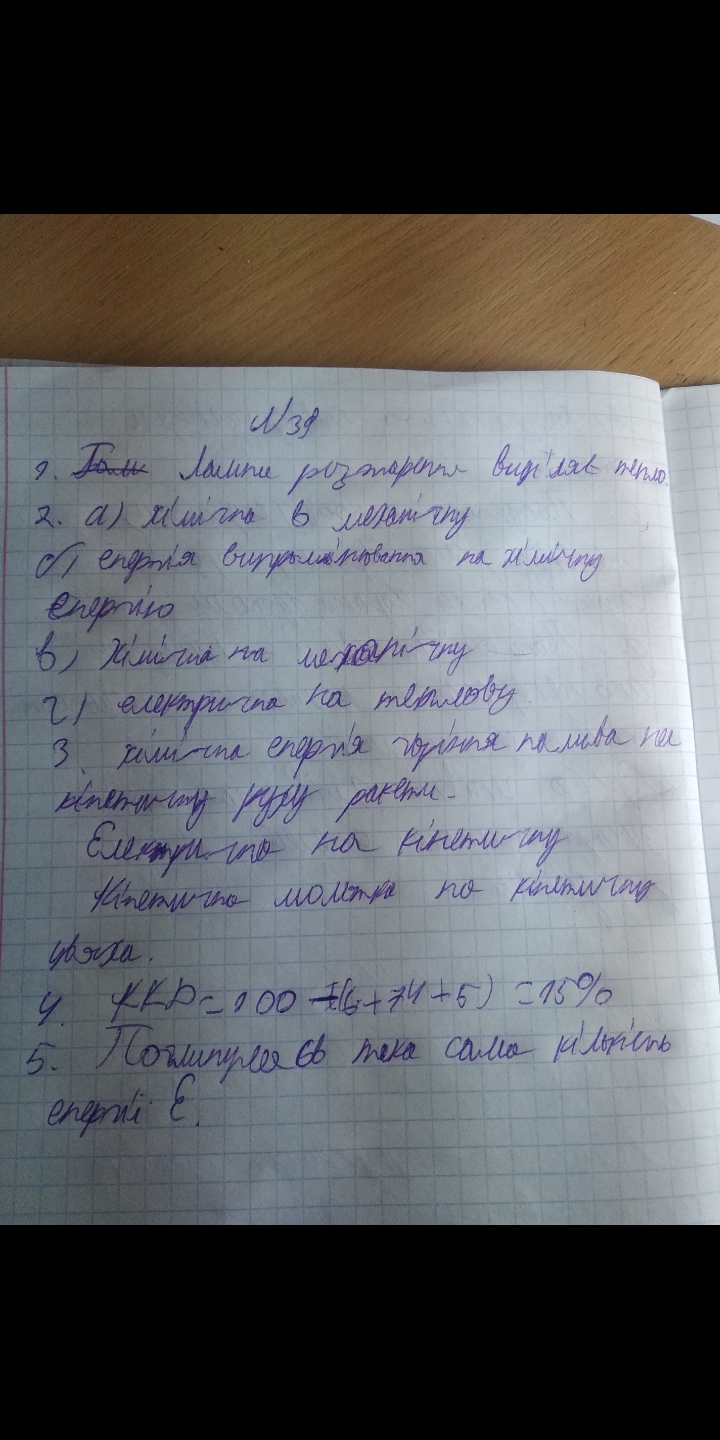 N39
1. Лампи розжарення виділяє тепло.
2. а) хімічна в механічну
б) енергія випромінювання на хімічну
енергію
в) Хімічна на механічну
г) електрична на теплову
3. хімічна енергія горіння палива на
кінетичну руху ракети.
Електрична на кінетичну
Кінетична молотка на кінетичну
цвяха.
4. ККД = 100 - (6+74+5) = 15%
5. така сама кількість
енергії E.